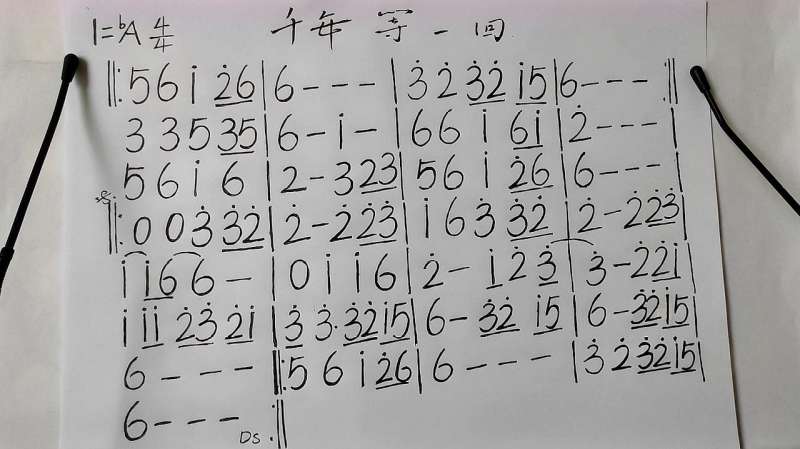 1=ᵇA 4/4 千年等一回
‖: 5 6 i̇ 2̇6 | 6 - - - | 3̇ 2̇ 3̇2̇ i̇5 | 6 - - - :‖
3 3 5 35 | 6 - i̇ - | 6 6 i̇ 6i̇ | 2̇ - - -
5 6 i̇ 6 | 2 - 3 23 | 5 6 i̇ 2̇6 | 6 - - -
𝄋 ‖: 0 0 3̇ 3̇2̇ | 2̇ - 2̇ 2̇3̇ | i̇ 6 3̇ 3̇2̇ | 2̇ - 2̇ 2̇3̇ |
i̇ i̇6 6 - | 0 i̇ i̇ 6 | 2̇ - i̇ 2̇ 3̇ | 3̇ - 2̇ 2̇i̇ |
i̇ i̇i̇ 2̇3̇ 2̇i̇ | 3̇ 3̇· 3̇2̇ i̇5 | 6 - 3̇2̇ i̇5 | 6 - 3̇2̇ i̇5 |
6 - - - ‖: 5 6 i̇ 2̇6 | 6 - - - | 3̇ 2̇ 3̇2̇ i̇5 |
6 - - - DS :‖